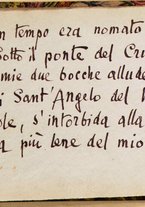 n tempo era nomato
Sotto il ponte del Cri
mie due bocche allude
i Sant'Angelo del
ole, s'intorbida alla
a più bene del mio